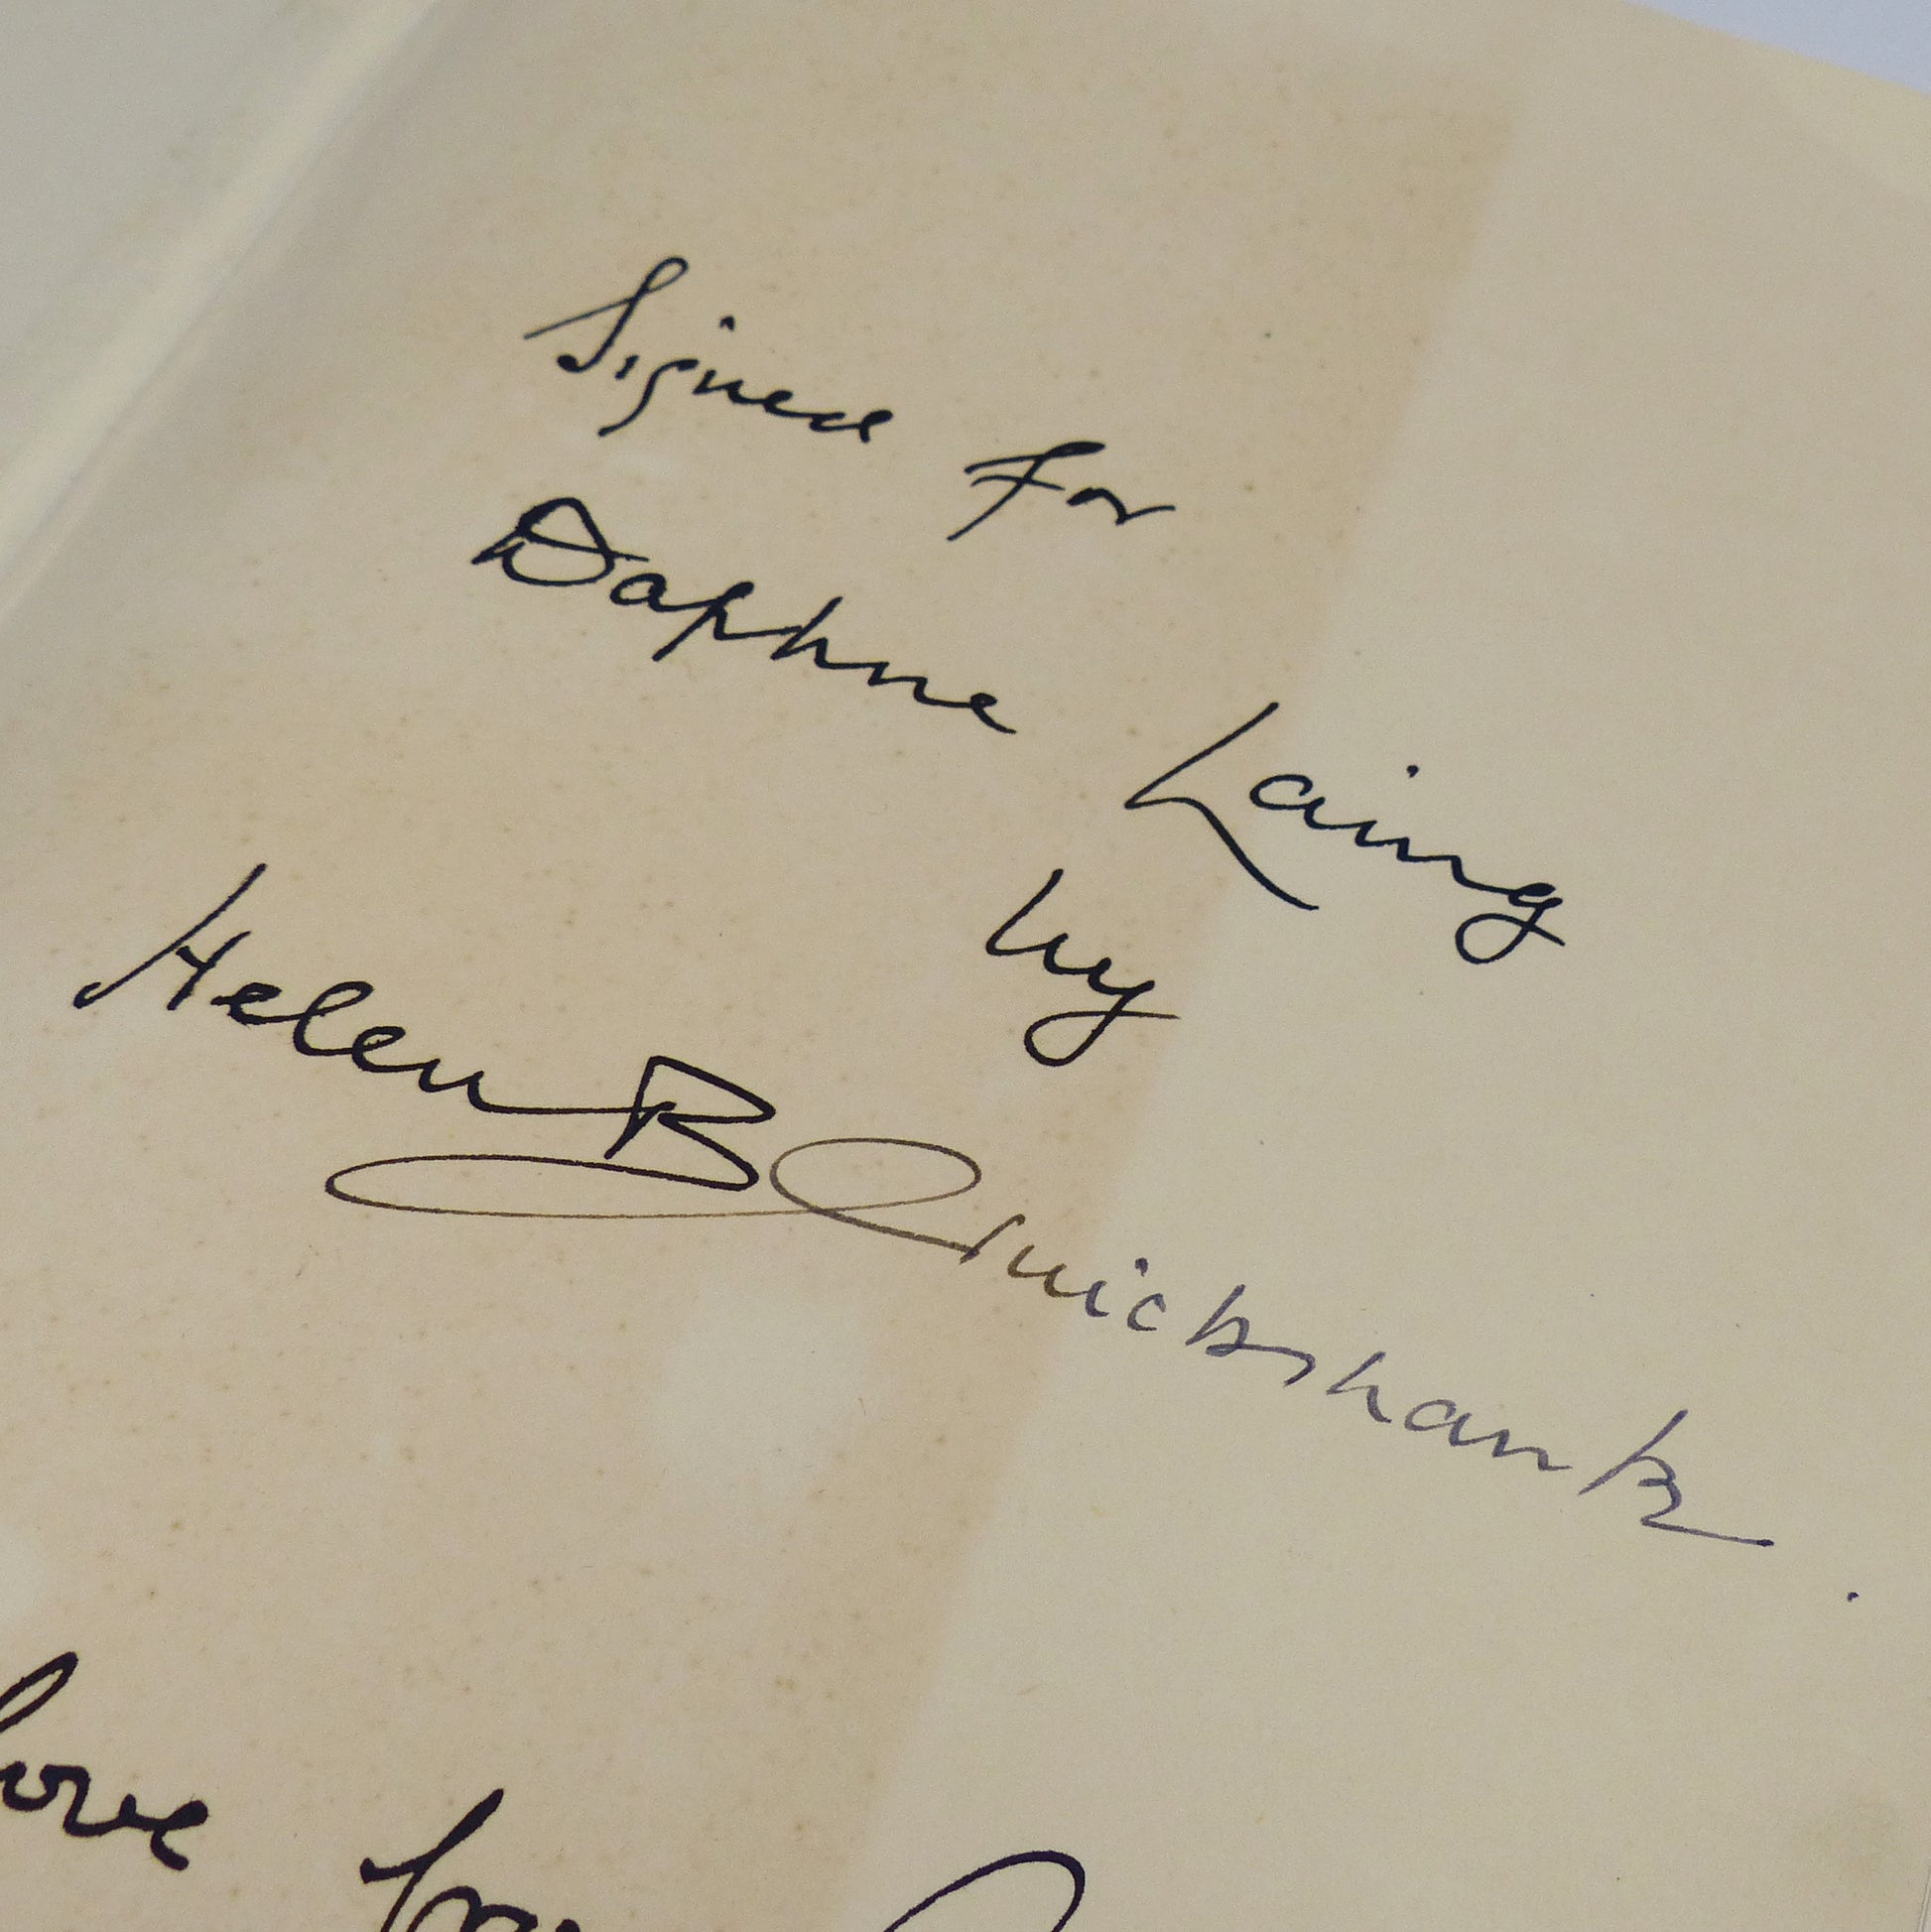 Signed For
Daphne Laing
by
Helen B Cruickshank.
love from